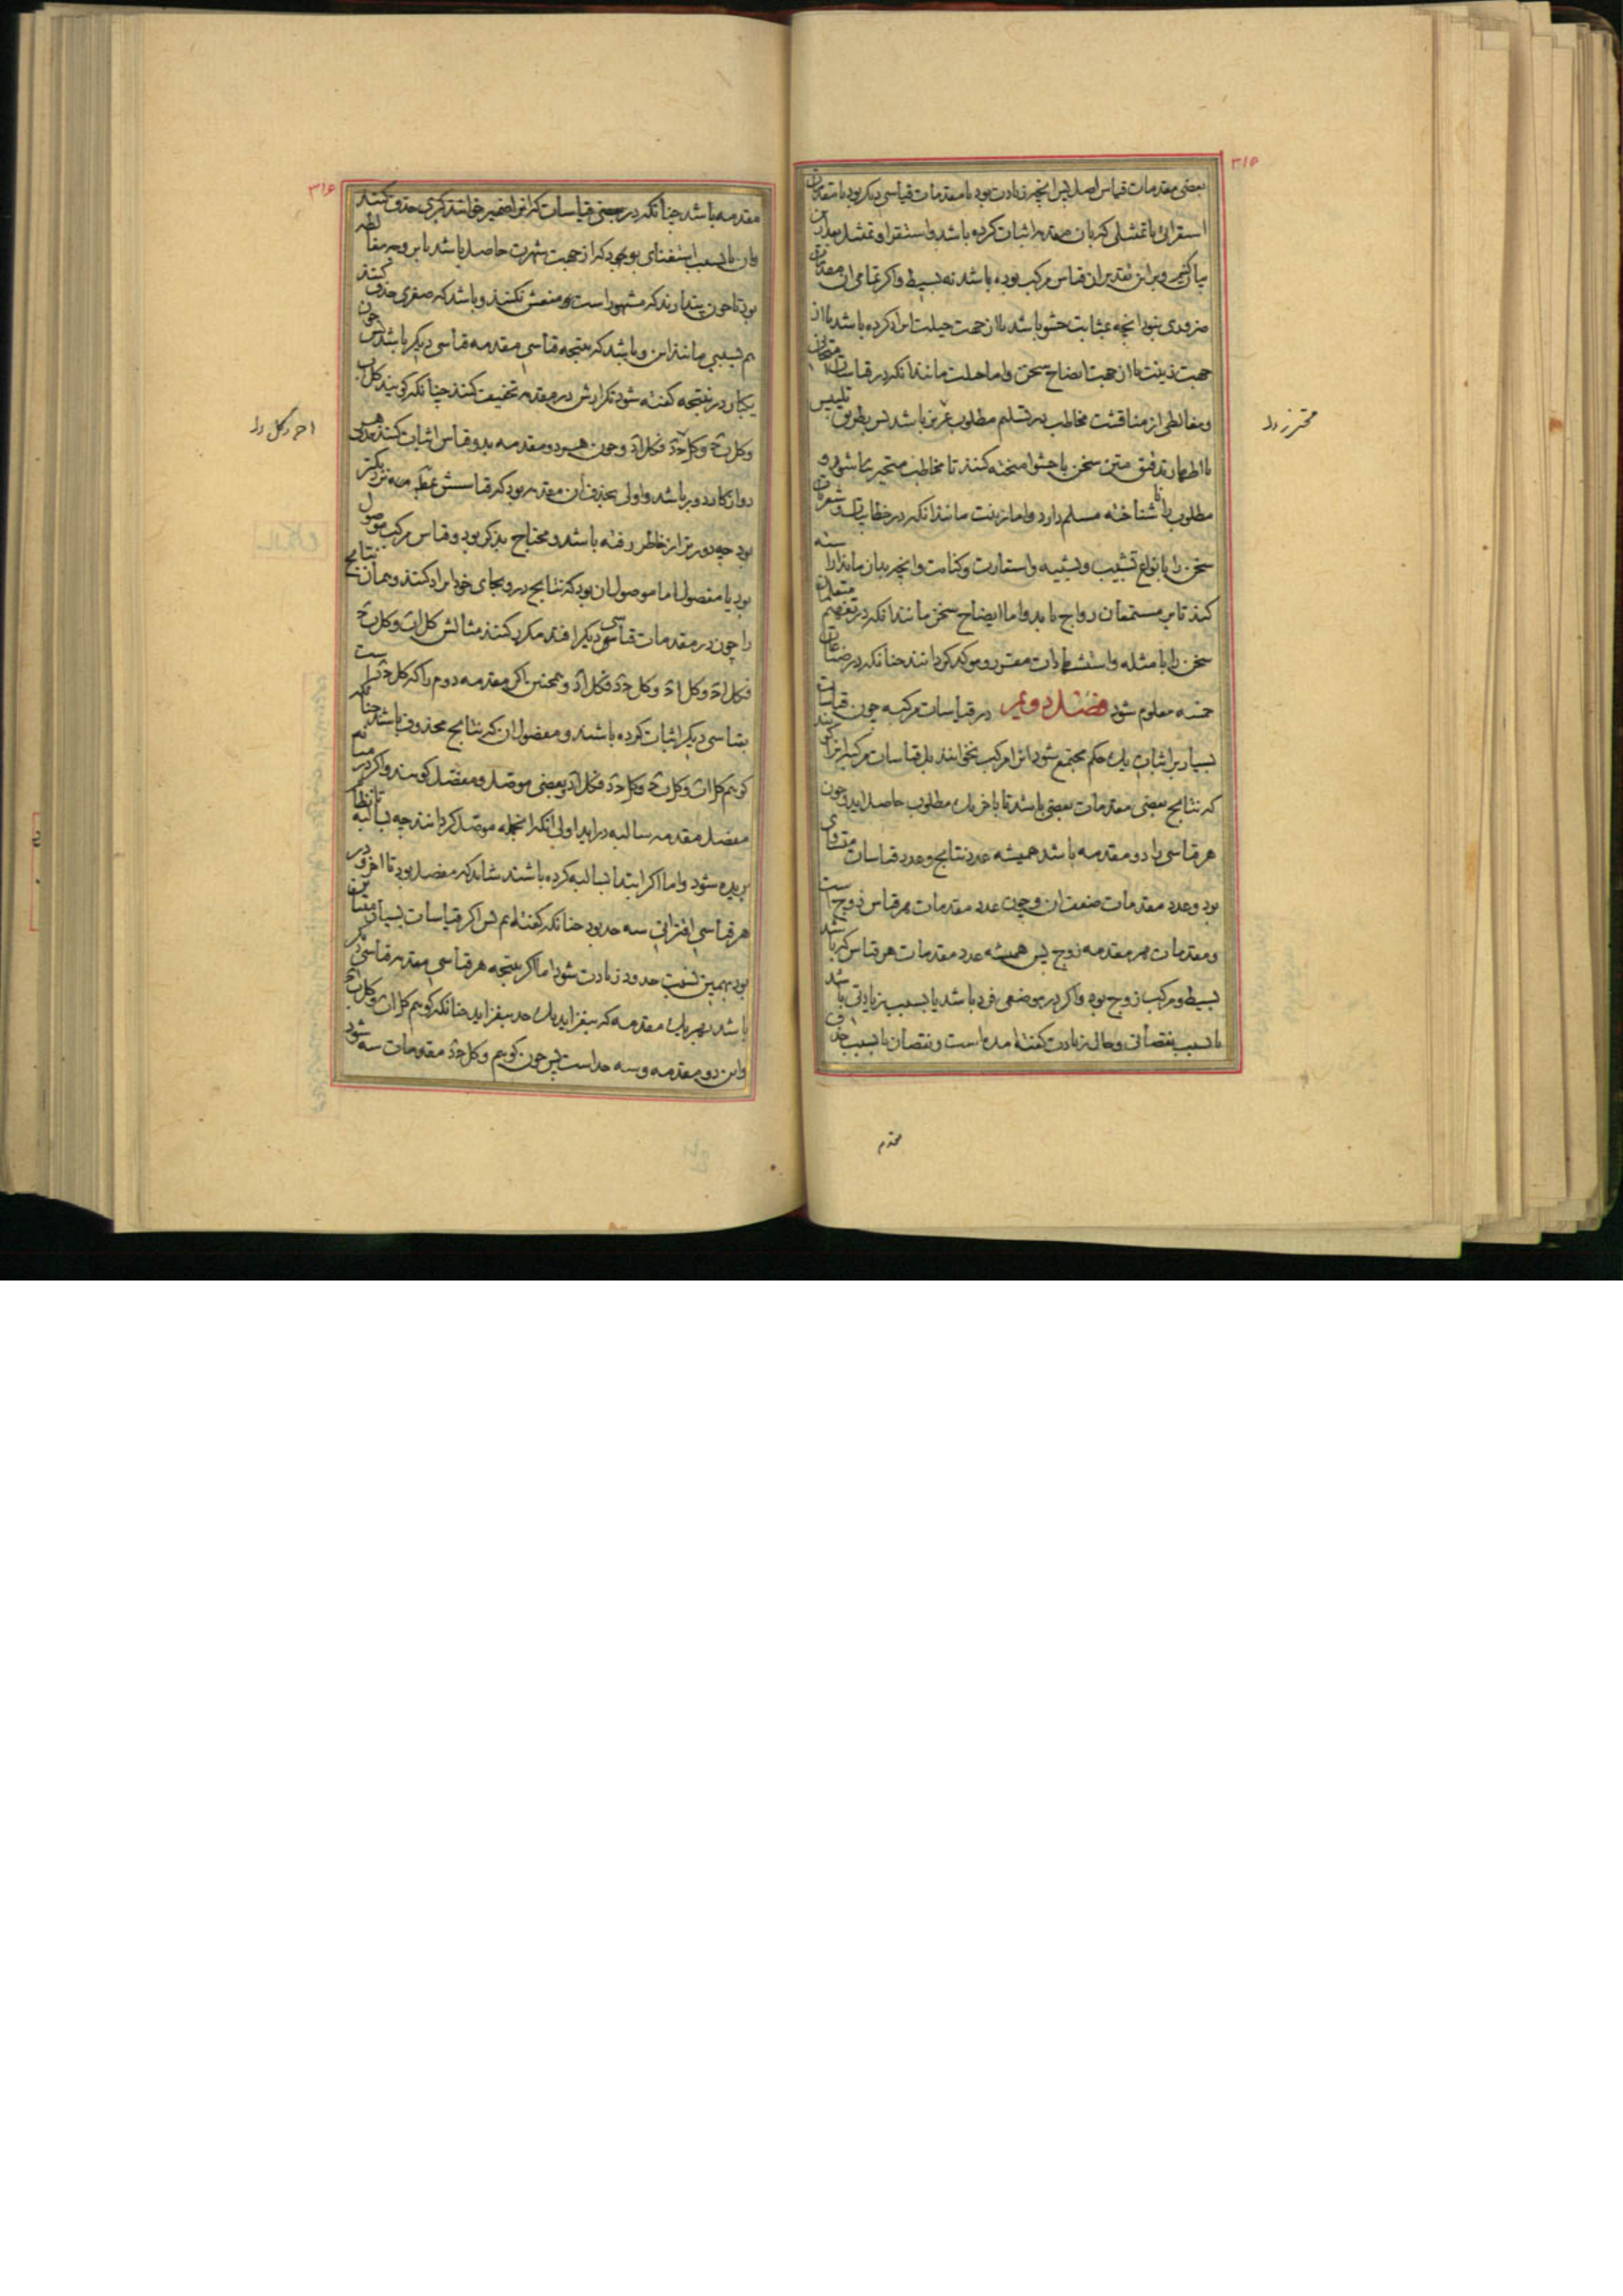 ۳۱۵
بعضی مقدمات قیاس اصل پس انچه زیادت بود یا مقدمات قیاسی دیگر بود یا مقدمات
استقرائی یا تمثیلی که بان مقدمه اثبات کرده باشد و استقرا و تمثیل بعد ازان
یاد کنیم و براین تقدیر ان قیاس مرکب بوده باشد نه بسیط و اگر تمامی ان مقدمات
ضروری نبود انچه بمثابت حشو باشد یا از جهت حیلت ایراد کرده باشد یا از
جهت زینت یا از جهت ایضاح سخن و اما حیلت مانند انکه در قیاسات امتحانی
و مغالطی از مناقشت مخاطب در تسلیم مطلوب باشد پس بطریق تلبیس
یا اظهار تدقیق متین سخن با حشو امیخته کنند تا مخاطب متحیر شود و
مطلوب را نا شناخته مسلم دارد و اما زینت مانند انکه در خطابیات و شعریات
سخن را بانواع تشبیب و تشبیه و استعارت و کنایت و انچه بدان ماند اراسته
کنند تا بر مستمعان رواج یابد و اما ایضاح سخن مانند انکه در تفهیم متعلمان
سخن را با مثله و استشهادات مقرر و موکد گردانند چنانکه در صناعات
خمسه معلوم شود فصل دویم در قیاسات مرکبه چون قیاسات
بسیار بر اثبات یک حکم مجتمع شود انرا مرکب نخوانند بل قیاسات مرکبه انرا گویند
که نتایج بعضی مقدمات بعضی باشد تا باخر یک مطلوب حاصل اید و چون
هر قیاسی را دو مقدمه باشد همیشه عدد نتایج و عدد قیاسات متساوی
بود و عدد مقدمات ضعف ان و چون عدد مقدمات هر قیاس زوج است
و مقدمات هر مقدمه زوج پس همیشه عدد مقدمات هر قیاس که باشد
بسیط و مرکب زوج بود و اگر در موضعی فرد باشد یا بسبب زیادتی باشد
یا بسبب نقصانی و حال زیادت گفته امده است و نقصان یا بسبب حذف
محترز
مقدم
۳۱۶
مقدمه باشد چنانکه در بعضی قیاسات که انرا ضمیر خوانند کبری حذف کنند
وان یا بسبب استغنای بود که از جهت شهرت حاصل باشد یا بر وجه مغالطه
بود تا چون پندارند که مشهور است منعش نکنند و باشد که صغری حذف کنند
هم بسببی مانند این و باشد که نتیجه قیاسی مقدمه قیاسی دیگر باشد پس چون
یکبار در نتیجه گفته شود تکرارش در مقدمه تخفیف کنند چنانکه گویند کل اب
وکل ب ج وکل ج د فکل اد و چون هر دو مقدمه بدو قیاس اثبات کنند
دو از کار دور باشد و اولی بحذف ان مقدمه بود که قیاسش بمطلوب نزدیکتر
بود چه دورتر از خاطر رفته باشد و محتاج بذکر بود و قیاس مرکب موصول
بود یا مفصول اما موصول ان بود که نتایج در و بجای خود ایراد کنند و همان نتایج
را چون در مقدمات قیاسی دیگر افتد مکرر کنند مثالش کل اب و کل ب ج
فکل اج و کل اج وکل ج د فکل اد و همچنین اگر مقدمه دوم را که کل ج د است
بقیاسی دیگر اثبات کرده باشند و مفصول ان که نتایج محذوف باشد چنانکه
گویم کل اب و کل ب ج وکل ج د فکل اد و بعضی موصل و مفصل گویند و اگر در
مفصل مقدمه سالبه در اید اولی انکه انجمله موصل گردانند چه بسالبه تا نظام
بریده شود و اما اگر ابتدا بسالبه کرده باشند شاید که مفصل بود تا اخر و در
هر قیاسی اقترانی سه حد بود چنانکه گفته ایم پس اگر قیاسات بسیار متباین
بود بهمین نسبت حدود زیادت شود اما اگر نتیجه هر قیاسی مقدمه قیاسی دیگر
باشد بهر یک مقدمه که بیفزاید یک حد بیفزاید چنانکه گویم کل اب وکل ب ج
واین دو مقدمه و سه حد است پس چون گویم وکل ج د مقدمات سه شود